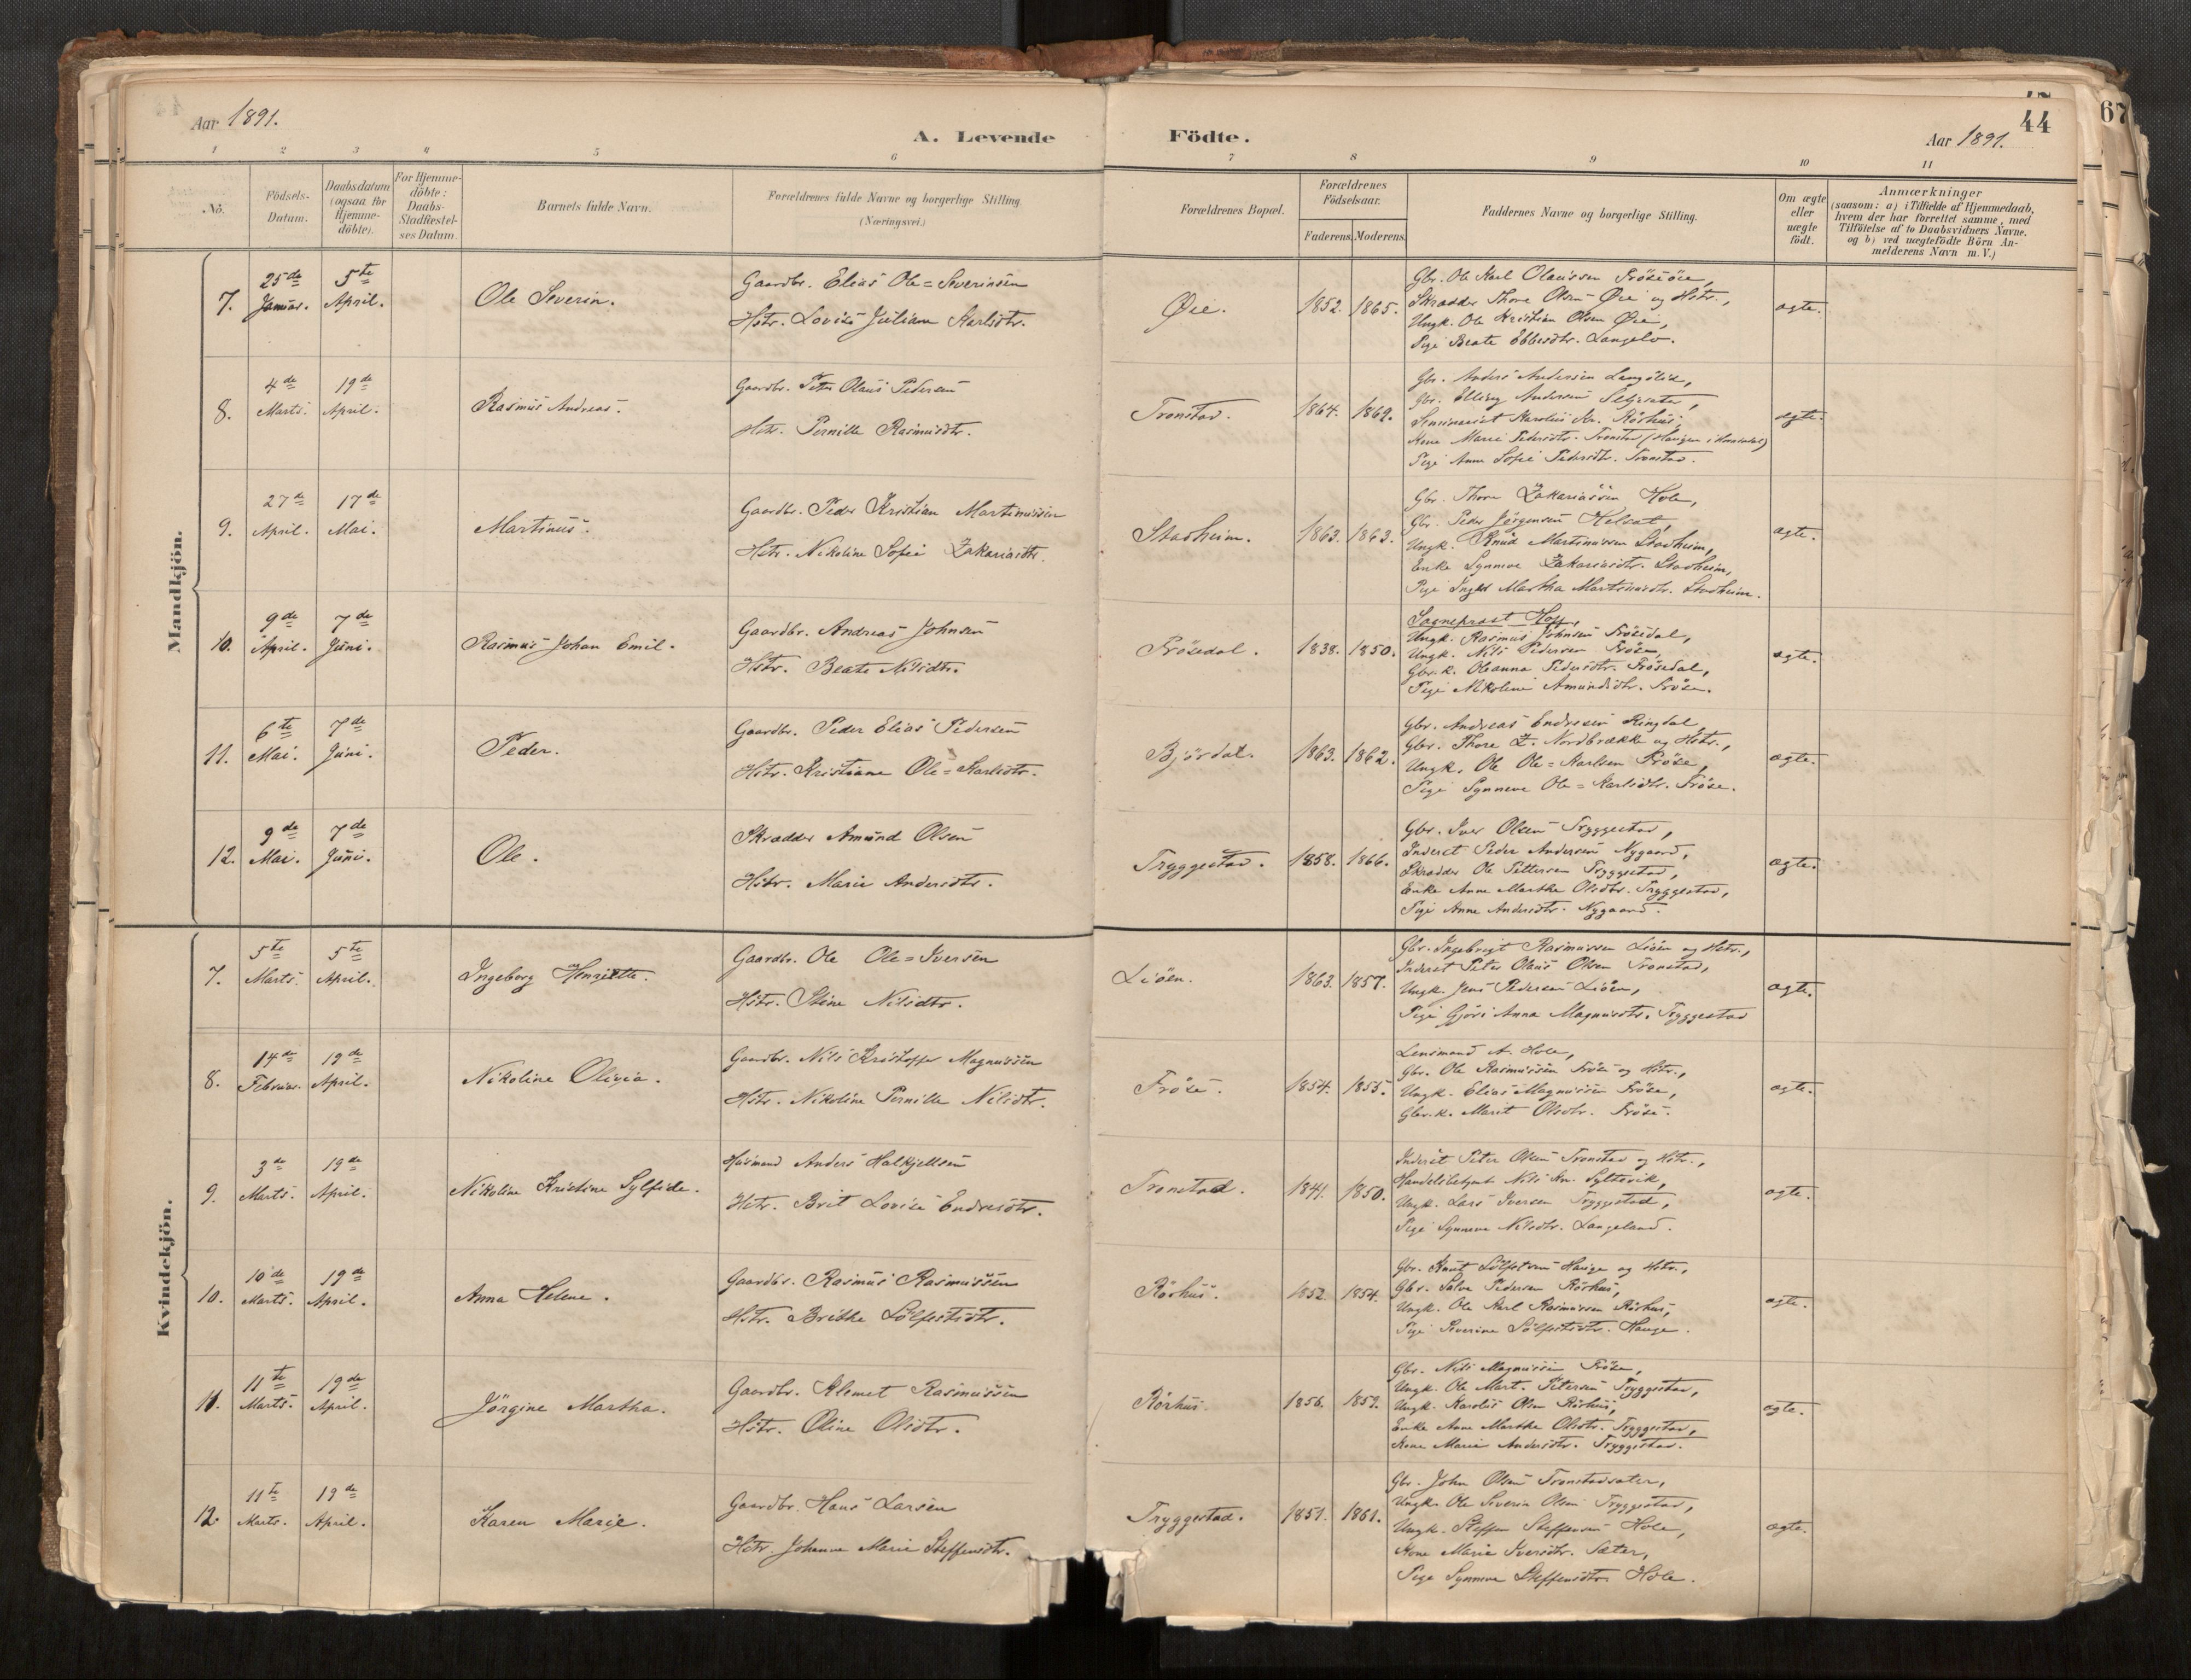 Aar 1891.
A. Levende
Födte.
Aar 1891.
44
67
1 2 3 4 5 6 7 8 9 10 11
No.
Födsels-
Datum.
Daabsdatum
(ogsaa for
Hjemme-
döbte).
For Hjemme-
döbte:
Daabs-
Stadfæstel-
ses Datum.
Barnets fulde Navn.
Forældrenes fulde Navne og borgerlige Stilling
(Næringsvei.)
Forældrenes Bopæl.
Forældrenes
Födselsaar.
Faderens. Moderens.
Faddernes Navne og borgerlige Stilling.
Om ægte
eller
uægte
födt.
Anmærkninger
(saasom: a) i Tilfælde af Hjemmedaab,
hvem der har forrettet samme, med
Tilföielse af to Daabsvidners Navne.
og b) ved uægtefödte Börn An-
melderens Navn m. V.)
Mandkjön.
7. 25de Januar. 5te April. Ole Severin.
Gaardbr. Elias Ole=Severinsen
Hstr. Lovise Juliane Karlsdtr.
Øie. 1852. 1865.
Gbr. Ole Karl Olaussen Fröisöie,
Skrædder Thore Olsen Øie og Hstr.,
Ungk. Ole Kristian Olsen Øie,
Pige Beate Ebbesdtr. Langelo.
ægte.
8. 4de Marts. 19de April. Rasmus Andreas.
Gaardbr. Peter Olaus Pedersen
Hstr. Pernille Rasmusdtr.
Tronstad. 1864. 1862.
Gbr. Anders Andersen Langlid,
Gbr. Elling Andersen
Seminarist Karolus Kr. Rörhus,
Kone Marie Pedersdtr. Tronstad
Pige Anne Sofie Pedersdtr. Tronstad.
ægte.
9. 27de April. 17de Mai. Martinus.
Gaardbr. Peder Kristian Martinussen
Hstr. Nikoline Sofie Zakariasdtr.
Stadheim. 1863. 1863.
Gbr. Thore Zakariassen Hole,
Gbr. Peder Jörgensen
Ungk. Knud Martinussen Stadheim,
Enke Synneve Zakariasdtr. Stadheim,
Pige Inger Martha Martinusdtr. Stadheim.
ægte.
10. 9de April. 7de Juni. Rasmus Johan Emil.
Gaardbr. Andreas Johnsen
Hstr. Beate Nilsdtr.
Frösedal. 1838. 1850.
Sogneprest Hoff,
Ungk. Rasmus Johnsen Frösedal,
Ungk. Nils Pedersen Fröse,
Gbr.k. Oleanna Pedersdtr. Frösedal,
Pige Nikoline Amundsdtr. Fröse.
ægte.
11. 6te Mai. 7de Juni. Peder.
Gaardbr. Peder Elias Pedersen
Hstr. Kristiane Ole=Karlsdtr.
Björdal. 1863. 1862.
Gbr. Andreas Endresen Ringdal,
Gbr. Thore Z. Nordbrække og Hstr.,
Ungk. Ole Ole=Karlsen Fröse,
Pige Synneve Ole=Karlsdtr. Fröse.
ægte.
12. 9de Mai. 7de Juni. Ole.
Skrædder Amund Olsen
Hstr. Marie Andersdtr.
Tryggestad. 1858. 1866.
Gbr. Iver Olsen Tryggestad,
Inderst Peder Andersen Nygaard,
Skrædder Ole Pettersen Tryggestad,
Enke Anne Marthe Olsdtr. Tryggestad,
Pige Anne Andersdtr. Nygaard.
ægte.
Kvindekjön.
7. 5te Marts. 5te April. Ingeborg Henriette.
Gaardbr. Ole Ole=Iversen
Hstr. Stine Nilsdtr.
Liöen. 1863. 1857.
Gbr. Ingebrigt Rasmussen Liöen og Hstr.,
Inderst Peter Olaus Olsen Tronstad,
Ungk. Jens Pedersen Liöen,
Pige Gjöri Anna Magnusdtr. Tryggestad
ægte.
8. 14de Februar. 19de April. Nikoline Olivia.
Gaardbr. Nils Kristoffer Magnussen
Hstr. Nikoline Pernille Nilsdtr.
Fröse. 1854. 1855.
Lensmand A. Hole,
Gbr. Ole Rasmussen Fröse og Hstr.,
Ungk. Elias Magnussen Fröse,
Gbr.k. Marit Olsdtr. Fröse.
ægte.
9. 3de Marts. 19de April. Nikoline Kristine Sylfide.
Husmand Anders Halkjellsen
Hstr. Brit Lovise Endresdtr.
Tronstad. 1841. 1850.
Inderst Peter Olsen Tronstad og Hstr.,
Handelsbetjent Nils Kr. Sylthevik,
Ungk. Lars Iversen Tryggestad,
Pige Synneve Nilsdtr. Langeland.
ægte.
10. 10de Marts. 19de April. Anna Helene.
Gaardbr. Rasmus Rasmussen
Hstr. Brithe Sölfestsdtr.
Rörhus. 1852. 1854.
Gbr. Knut Sölfestsen Hauge og Hstr.,
Gbr. Salve Pedersen Rörhus,
Ungk. Ole Karl Rasmussen Rörhus,
Pige Severine Sölfestsdtr. Hauge.
ægte.
11. 11te Marts. 19de April. Jörgine Martha.
Gaardbr. Klemet Rasmussen
Hstr. Oline Olsdtr.
Rörhus. 1856. 1859.
Gbr. Nils Magnussen Fröse,
Ungk. Ole Mart. Petersen Tryggestad,
Ungk. Karolus Olsen Rörhus,
Enke Anne Marthe Olsdtr. Tryggestad,
Kone Marie Andersdtr. Tryggestad.
ægte.
12. 11te Marts. 19de April. Karen Marie.
Gaardbr. Hans Larsen
Hstr. Johanne Marie Steffensdtr.
Tryggestad. 1857. 1861.
Gbr. John Olsen Tronstadsæter,
Ungk. Ole Severin Olsen Tryggestad,
Ungk. Steffen Steffensen Hole,
Kone Marie Iversdtr. Sæter,
Pige Synneve Steffensdtr. Hole.
ægte.